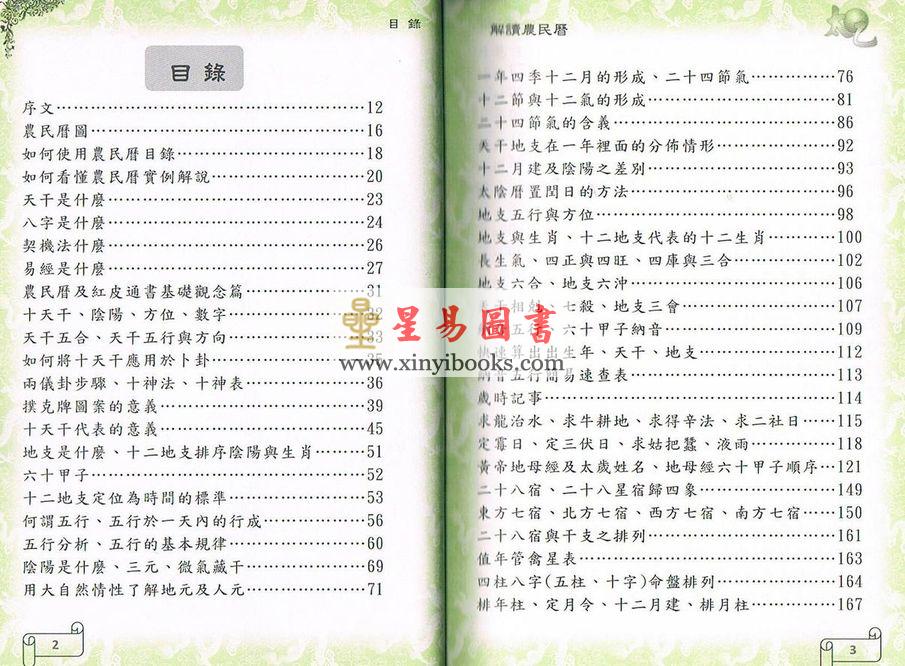 目錄
目錄
序文⋯⋯⋯⋯⋯⋯⋯⋯⋯⋯12
農民曆圖⋯⋯⋯⋯⋯⋯⋯⋯⋯⋯16
如何使用農民曆目錄⋯⋯⋯⋯⋯⋯⋯⋯18
如何看懂農民曆實例解說⋯⋯⋯⋯⋯⋯20
天干是什麼⋯⋯⋯⋯⋯⋯⋯⋯⋯⋯23
八字是什麼⋯⋯⋯⋯⋯⋯⋯⋯⋯⋯24
契機法什麼⋯⋯⋯⋯⋯⋯⋯⋯⋯⋯26
易經是什麼⋯⋯⋯⋯⋯⋯⋯⋯⋯⋯27
農民曆及紅皮通書基礎觀念篇⋯⋯⋯⋯31
十天干、陰陽、方位、數字⋯⋯⋯⋯32
天干五合、天干五行與方向⋯⋯⋯⋯33
如何將十天干應用於卜卦⋯⋯⋯⋯35
兩儀卦步驟、十神法、十神表⋯⋯⋯⋯36
撲克牌圖案的意義⋯⋯⋯⋯⋯⋯39
十天干代表的意義⋯⋯⋯⋯⋯⋯45
地支是什麼、十二地支排序陰陽與生肖⋯⋯51
六十甲子⋯⋯⋯⋯⋯⋯⋯⋯⋯⋯52
十二地支定位為時間的標準⋯⋯⋯⋯53
何謂五行、五行於一天內的行成⋯⋯⋯⋯56
五行分析、五行的基本規律⋯⋯⋯⋯60
陰陽是什麼、三元、微氣藏干⋯⋯⋯⋯69
用大自然情性了解地元及人元⋯⋯⋯⋯71
2
解讀農民曆
一年四季十二月的形成、二十四節氣⋯⋯⋯⋯76
十二節與十二氣的形成⋯⋯⋯⋯⋯⋯81
二十四節氣的含義⋯⋯⋯⋯⋯⋯86
天干地支在一年裡面的分佈情形⋯⋯⋯⋯92
十二月建及陰陽之差別⋯⋯⋯⋯⋯⋯93
太陰曆置閏日的方法⋯⋯⋯⋯⋯⋯96
地支五行與方位⋯⋯⋯⋯⋯⋯98
地支與生肖、十二地支代表的十二生肖⋯⋯100
長生氣、四正與四旺、四庫與三合⋯⋯⋯⋯102
地支六合、地支六沖⋯⋯⋯⋯⋯⋯106
天干相剋、七殺、地支三會⋯⋯⋯⋯107
五行、六十甲子納音⋯⋯⋯⋯109
快速算出出生年、天干、地支⋯⋯⋯⋯112
納音五行簡易速查表⋯⋯⋯⋯⋯⋯113
歲時記事⋯⋯⋯⋯⋯⋯⋯⋯114
求龍治水、求牛耕地、求得辛法、求二社日⋯⋯115
定霉日、定三伏日、求姑把蠶、液雨⋯⋯⋯⋯118
黃帝地母經及太歲姓名、地母經六十甲子順序⋯121
二十八宿、二十八星宿歸四象⋯⋯⋯⋯149
東方七宿、北方七宿、西方七宿、南方七宿⋯⋯150
二十八宿與干支之排列⋯⋯⋯⋯⋯⋯161
值年管禽星表⋯⋯⋯⋯⋯⋯⋯⋯163
四柱八字(五柱、十字)命盤排列⋯⋯⋯⋯164
排年柱、定月令、十二月建、排月柱⋯⋯⋯⋯167
3
星易圖書
www.xinyibooks.com